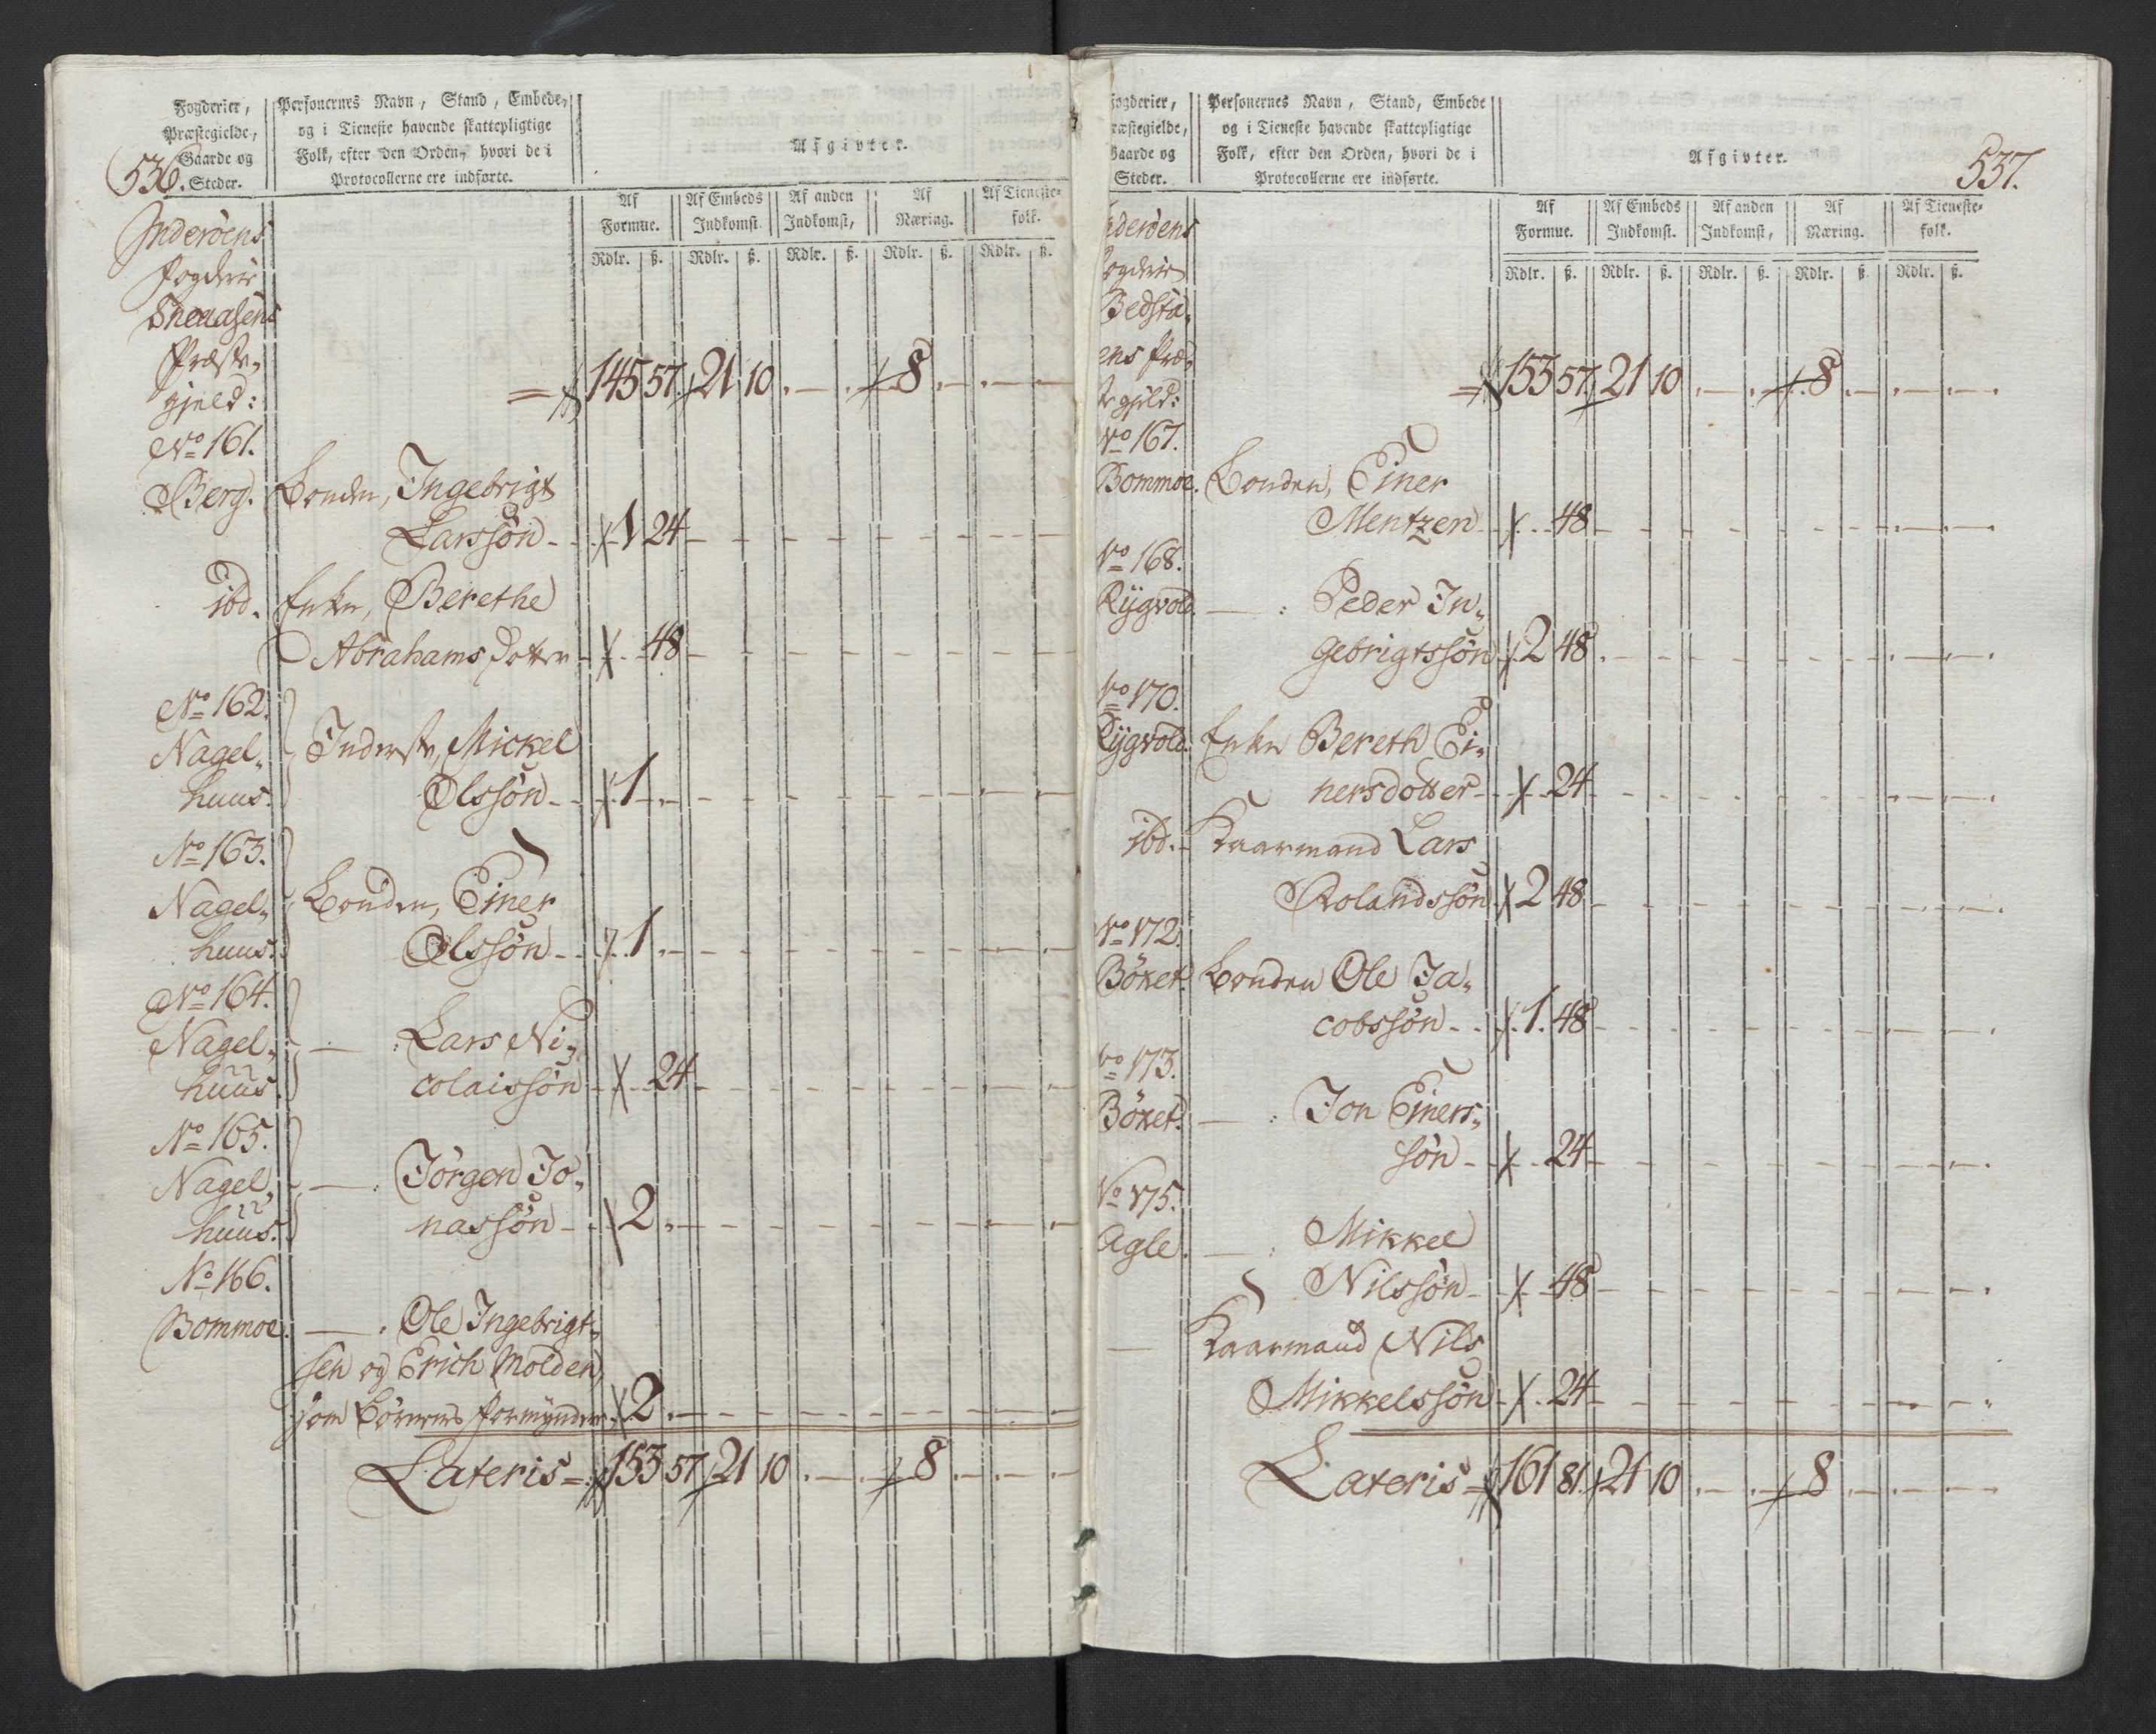 536.
Fogderier,
Præstegielde,
Gaarde og
Steder.
Personernes Navn, Stand, Embede,
og i Tieneste havende skattepligtige
Folk, efter den Orden, hvori de i
Protocollerne ere indførte.
Afgivter.
Af Formue. Af Embeds Indkomst. Af anden Indkomst, Af Næring. Af Tieneste-folk.
Rdlr. ß. Rdlr. ß. Rdlr. ß. Rdlr. ß. Rdlr. ß.
Inderöens
Fogderie
Sneaasens
Præste-
gjeld: = 145 57. 21 10. — . 8. — . — . —
No 161.
Berg. Bonden, Ingebrigt
Larssön - 1 24
ibd. Enke, Berethe
Abrahams Dotter - 48
No 162.
Nagel- Inderste, Mickel
huus. Olssön - 1. —
No 163.
Nagel- Bonden, Einer
huus. Olssön - 1. —
No 164.
Nagel- — : Lars Ni-
huus. colaissön - 24
No 165.
Nagel- — : Jörgen Jo-
huus. nassön - 2. —
No 166.
Bommoe. — . Ole Ingebrigt-
sen og Erich Molden,
som Börnenes Formynder. 2. —
Lateris = 153 57 21 10. — . 8. — . — . —
537.
Fogderier,
ræstegielde,
Gaarde og
Steder.
Personernes Navn, Stand, Embede
og i Tieneste havende skattepligtige
Folk, efter den Orden, hvori de i
Protocollerne ere indførte.
Afgivter.
Af Formue. Af Embeds Indkomst. Af anden Indkomst, Af Næring. Af Tieneste-folk.
Rdlr. ß. Rdlr. ß. Rdlr. ß. Rdlr. ß. Rdlr. ß.
nderöens
ogderie
Bedsta-
ens Præ-
gjeld: = 153 57. 21 10. — . 8. — . — . —
No 167.
Bommoe. Bonden, Einer
Mentzen - 48
No 168.
Rygvold. — : Peder In-
gebrigtssön 2 48.
No 170.
Rygvold. Enke Bereth Ei-
nersdotter - 24
ibd. - Kaarmand Lars
Rolandssön 2 48
No 172.
Böxet. Bonden Ole Ja-
cobssön - 1. 48
No 173.
Böxet. — : Jon Einers-
sön - 24
No 175.
Agle. — : Mikkel
Nilssön - 48
— Kaarmand Nils
Mikkelssön - 24
Lateris = 161 81. 21 10. — . 8. — . — . —